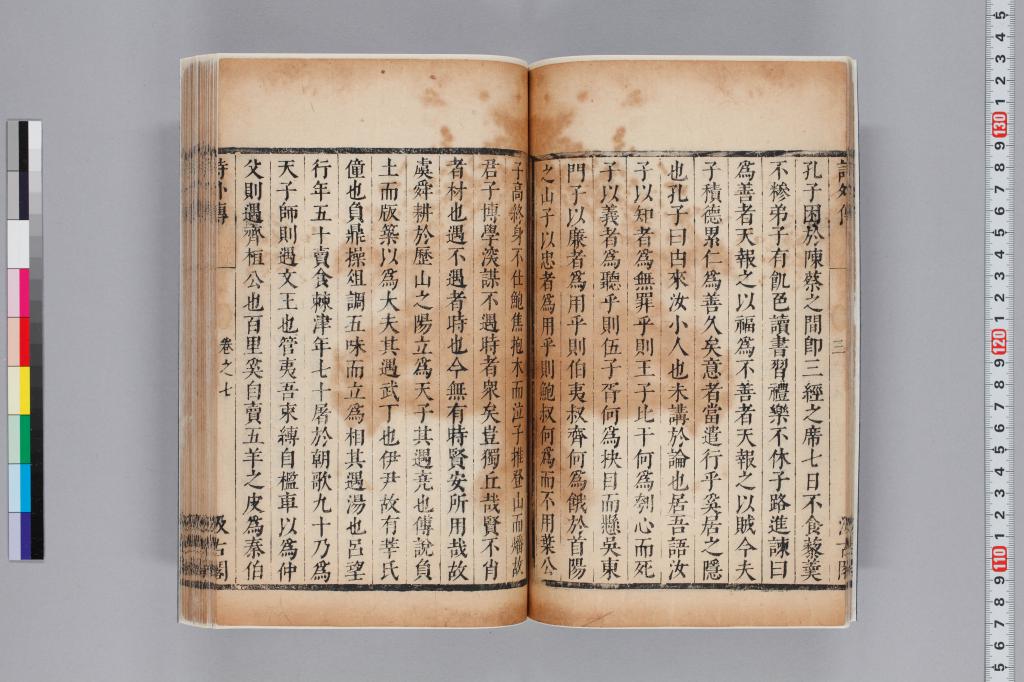 孔子困於陳蔡之間即三經之席七日不食藜羹
不糝弟子有飢色讀書習禮樂不休子路進諫曰
爲善者天報之以福爲不善者天報之以賊今夫
子積德累仁爲善久矣意者當遣行乎奚居之隱
也孔子曰由來汝小人也未講於論也居吾語汝
子以知者爲無罪乎則王子比干何爲刳心而死
子以義者爲聽乎則伍子胥何爲抉目而懸吳東
門子以廉者爲用乎則伯夷叔齊何爲餓於首陽
之山子以忠者爲用乎則鮑叔何爲而不用葉公
子高終身不仕鮑焦抱木而泣子推登山而燔故
君子博學深謀不遇時者衆矣豈獨丘哉賢不肖
者材也遇不遇者時也今無有時賢安所用哉故
虞舜耕於歷山之陽立爲天子其遇堯也傅說負
土而版築以爲大夫其遇武丁也伊尹故有莘氏
僮也負鼎操俎調五味而立爲相其遇湯也呂望
行年五十賣食棘津年七十屠於朝歌九十乃爲
天子師則遇文王也管夷吾束縛自檻車以爲仲
父則遇齊桓公也百里奚自賣五羊之皮爲秦伯
卷之七
三